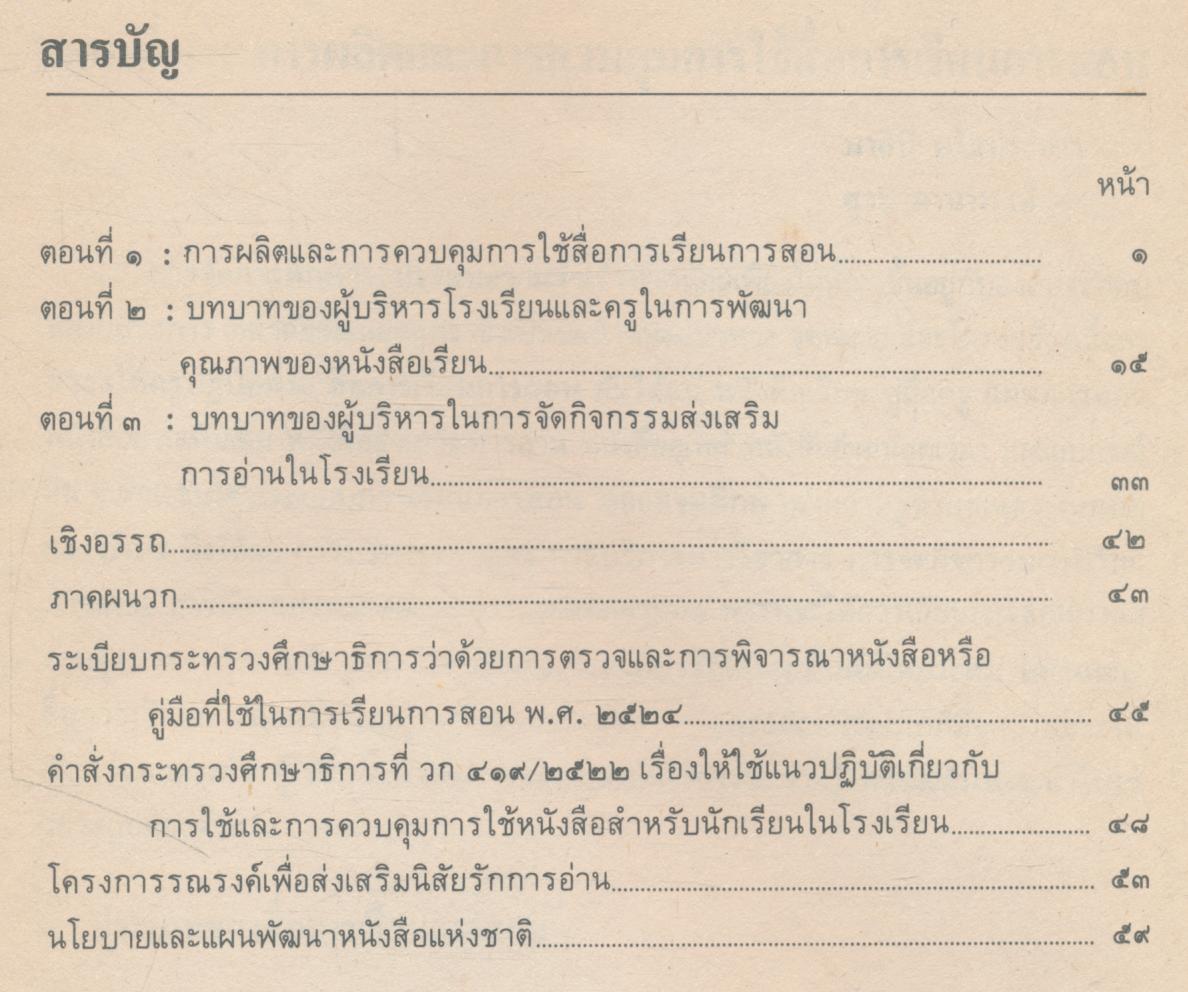 สารบัญ
หน้า
ตอนที่ ๑ : การผลิตและการควบคุมการใช้สื่อการเรียนการสอน........................ ๑
ตอนที่ ๒ : บทบาทของผู้บริหารโรงเรียนและครูในการพัฒนา
คุณภาพของหนังสือเรียน........................ ๑๕
ตอนที่ ๓ : บทบาทของผู้บริหารในการจัดกิจกรรมส่งเสริม
การอ่านในโรงเรียน........................ ๓๓
เชิงอรรถ........................ ๔๒
ภาคผนวก........................ ๔๓
ระเบียบกระทรวงศึกษาธิการว่าด้วยการตรวจและการพิจารณาหนังสือหรือ
คู่มือที่ใช้ในการเรียนการสอน พ.ศ. ๒๕๒๔........................ ๔๕
คำสั่งกระทรวงศึกษาธิการที่ วก ๔๑๙/๒๕๒๒ เรื่องให้ใช้แนวปฏิบัติเกี่ยวกับ
การใช้และการควบคุมการใช้หนังสือสำหรับนักเรียนในโรงเรียน........................ ๔๘
โครงการรณรงค์เพื่อส่งเสริมนิสัยรักการอ่าน........................ ๕๓
นโยบายและแผนพัฒนาหนังสือแห่งชาติ........................ ๕๙